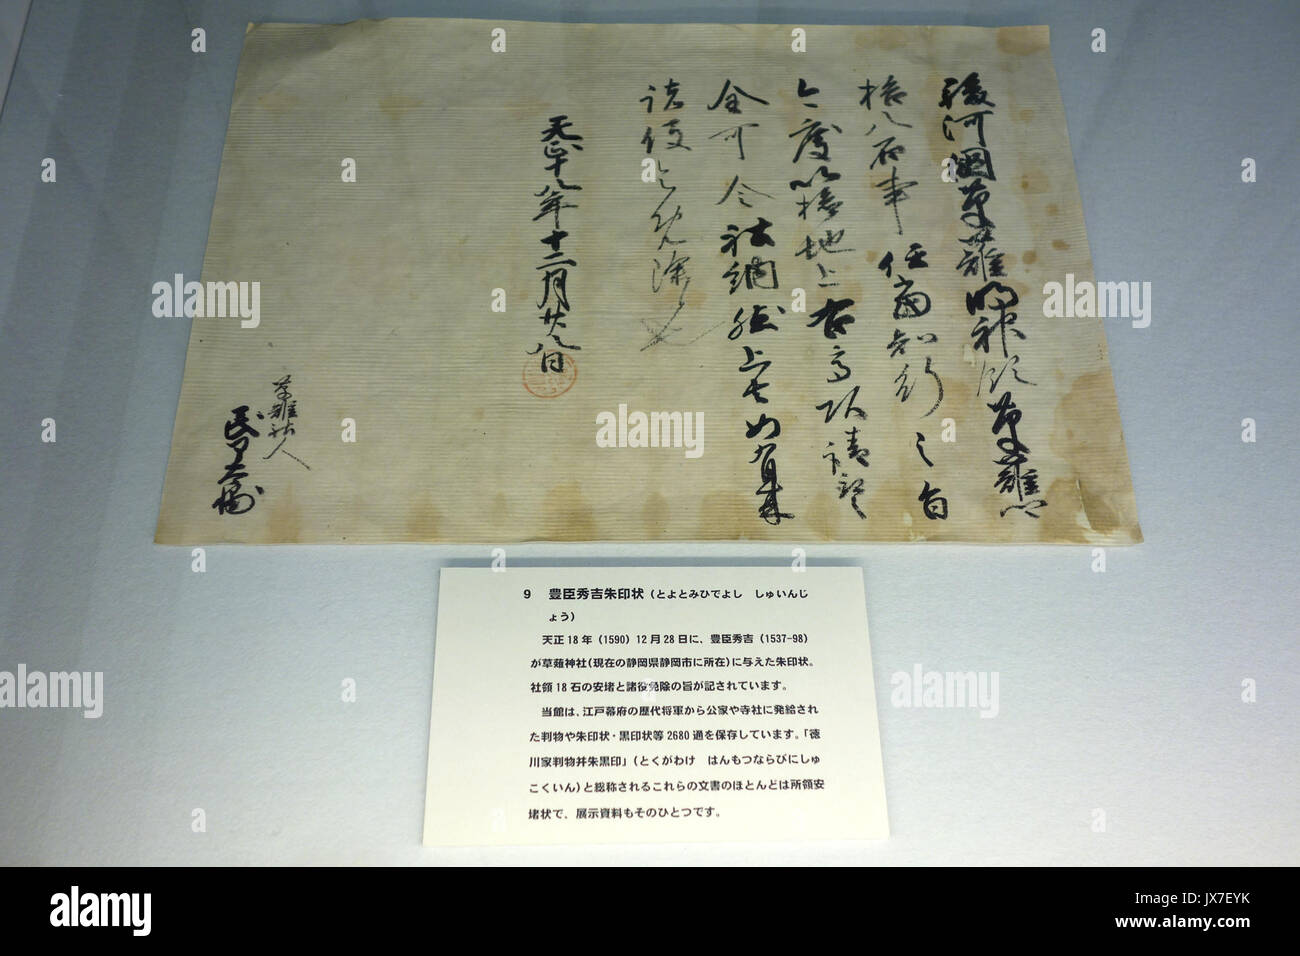 駿河國草薙明神領草薙心
拾八石事任當知行之旨
今度以檢地上
全可令社納
諸役令免除者也
天正十八年十二月廿八日
草薙社人
9 豊臣秀吉朱印状（とよとみひでよし　しゅいんじ
ょう）
天正18年（1590）12月28日に、豊臣秀吉（1537-98）
が草薙神社（現在の静岡県静岡市に所在）に与えた朱印状。
社領18石の安堵と諸役免除の旨が記されています。
当館は、江戸幕府の歴代将軍から公家や寺社に発給され
た判物や朱印状・黒印状等2680通を保存しています。「徳
川家判物并朱黒印」（とくがわけ　はんもつならびにしゅ
こくいん）と総称されるこれらの文書のほとんどは所領安
堵状で、展示資料もそのひとつです。
alamy
alamy
Image ID: JX7EYK
www.alamy.com